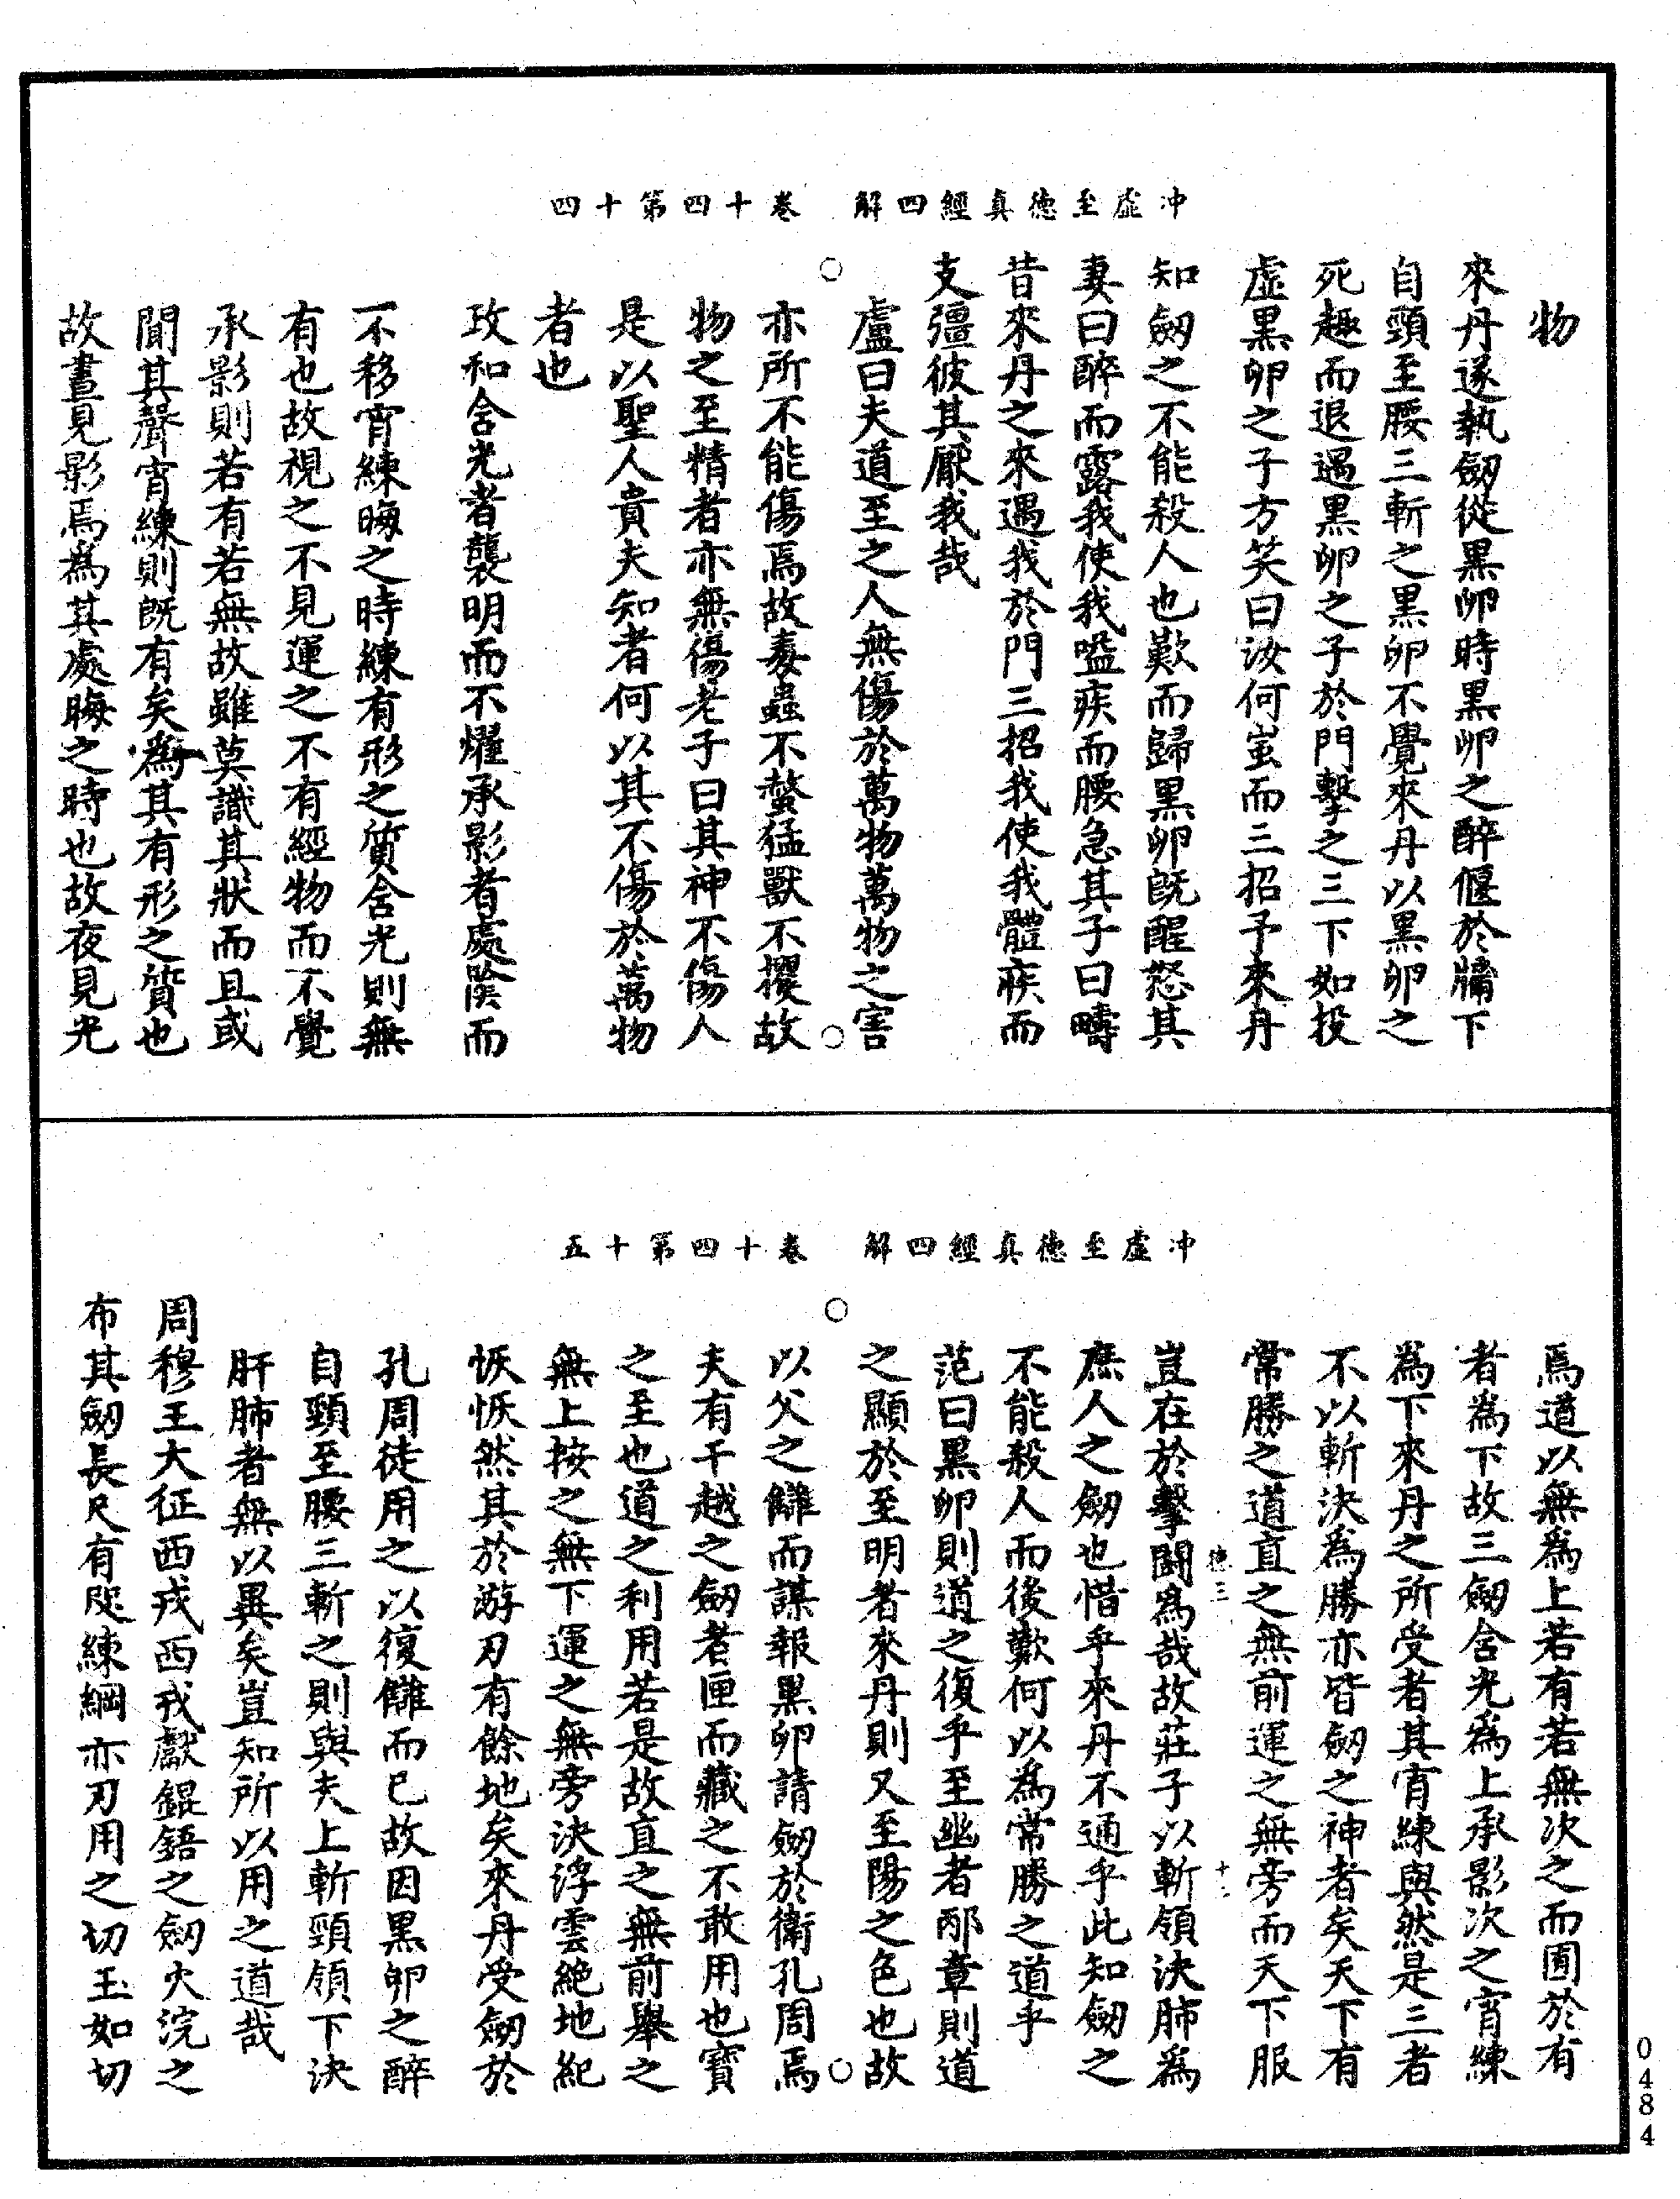 冲虛至德真經四解　卷十四第十四
物
來丹遂執劒從黑卵時黑卵之醉偃於牖下
自頸至腰三斬之黑卵不覺來丹以黑卵之
死趣而退遇黑卵之子於門擊之三下如投
虛黑卵之子方笑曰汝何蚩而三招予來丹
知劒之不能殺人也歎而歸黑卵既醒怒其
妻曰醉而露我使我嗌疾而腰急其子曰疇
昔來丹之來遇我於門三招我使我體疾而
支彊彼其厭我哉
盧曰夫道至之人無傷於萬物萬物之害
亦所不能傷焉故毒蟲不螫猛獸不攫故
物之至精者亦無傷老子曰其神不傷人
是以聖人貴夫知者何以其不傷於萬物
者也
政和含光者襲明而不燿承影者處陰而
不移宵練晦之時練有形之質含光則無
有也故視之不見運之不有經物而不覺
承影則若有若無故雖莫識其狀而且或
聞其聲宵練則既有矣為其有形之質也
故晝見影焉為其處晦之時也故夜見光
冲虛至德真經四解　卷十四第十五
焉道以無為上若有若無次之而囿於有
者為下故三劒含光為上承影次之宵練
為下來丹之所受者其宵練與然是三者
不以斬決為勝亦皆劒之神者矣天下有
常勝之道直之無前運之無旁而天下服
德三　十二
豈在於擊鬭為哉故莊子以斬領決肺為
庶人之劒也惜乎來丹不通乎此知劒之
不能殺人而後歎何以為常勝之道乎
范曰黑卵則道之復乎至幽者邴章則道
之顯於至明者來丹則又至陽之色也故
以父之讎而謀報黑卵請劒於衛孔周焉
夫有干越之劒者匣而藏之不敢用也寶
之至也道之利用若是故直之無前舉之
無上按之無下運之無旁決浮雲絕地紀
恢恢然其於游刃有餘地矣來丹受劒於
孔周徒用之以復讎而已故因黑卵之醉
自頸至腰三斬之則與夫上斬頸領下決
肝肺者無以異矣豈知所以用之道哉
周穆王大征西戎西戎獻錕鋙之劒火浣之
布其劒長尺有咫練鋼亦刃用之切玉如切
0484